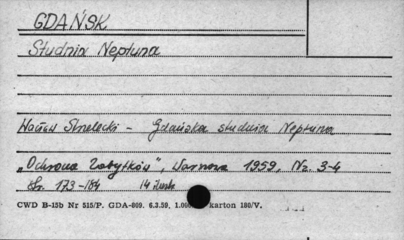 GDAŃSK
Studnia Neptuna
Wacław Strzelecki - Gdańska studnia Neptuna
„Ochrona Zabytków", Warszawa 1959, Nr. 3-4
str. 173-184 14 ilustr.
CWD B-15b Nr 515/P. GDA-809. 6.3.59, 1.000 karton 180/V.